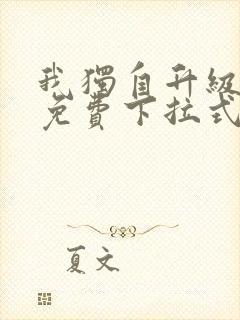 我獨自升級
免費下拉式
夏文